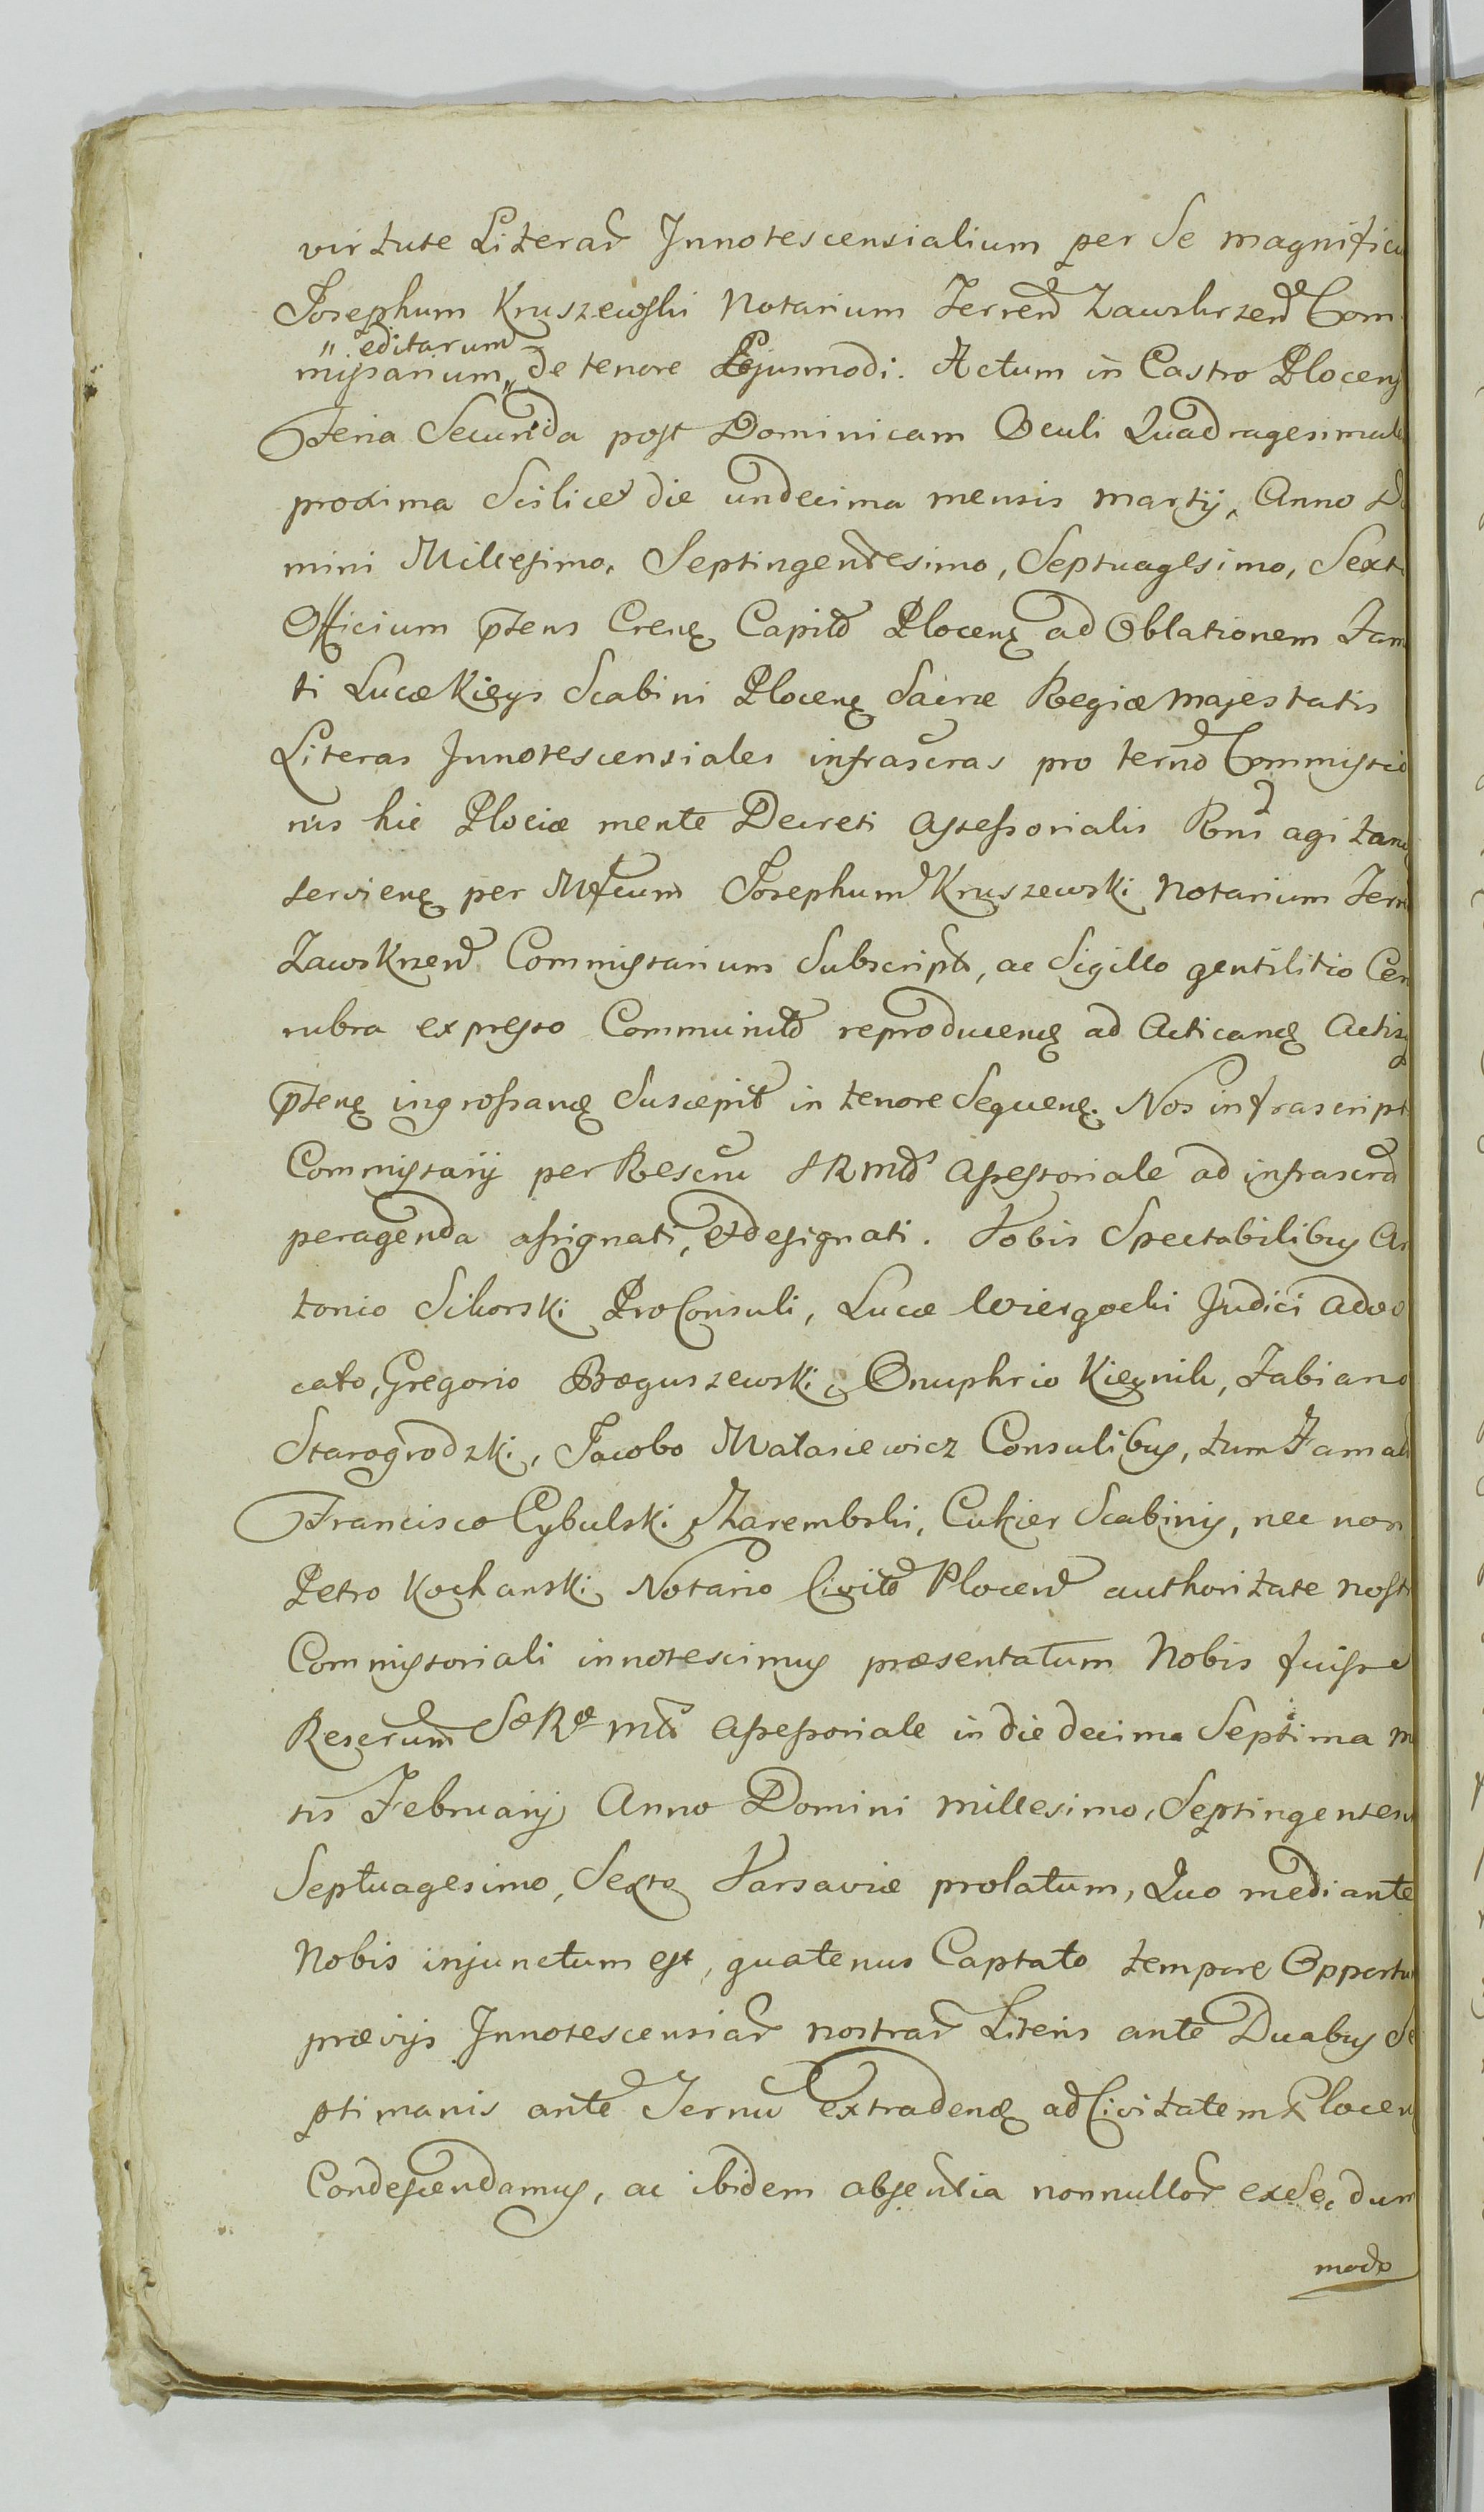 virtute Literar Innotescensialium per se magnificu
Josephum Kruszewski Notarium Terren Zawskrzen Com
" editarum
missarium " de tenore Ejusmodi. Actum in Castro Plocens
Feria Secunda post Dominicam Oculi Quadragesimale
proxima scilicet die undecima mensis martij, Anno Do
mini Millesimo, Septingentesimo, Septuagesimo, Sexto
Officium ptens Crens Capitl Plocens ad Oblationem Fam
ti Lucæ Kieys Scabini Plocens Sacræ Regiæ majestatis
Literas Innotescensiales infrascras pro termo Commissio
nis hic Plociæ mente Decreti assessorialis Rni agitan
serviens per Mfcum Josephum Kruszewski Notarium Terr
Zawskrzen Commissarium Subscript, ac Sigillo gentilitio Cer
rubra expresso Communitl reproducens ad Acticand Actisq
ptens ingrossand Suscepit in tenore Sequens. Nos infrascript
Commissarij per Rescru SRMtis assessoriale ad infrascra
peragenda assignati, et designati. Vobis Spectabilibus An
tonio Sikorski ProConsuli, Lucæ Wiergocki Judici advo
cato, Gregorio Boguszewski, Onuphrio Kieynik, Fabiano
Starogrodzki, Jacobo Matasiewicz Consulibus, tum Famat
Francisco Cybulski, Zarembski, Cukier Scabinis, nec non
Petro Kochanski Notario Civitl Plocen authoritate nostr
Commissoriali innotescimus præsentatum Nobis fuisse
Rescrum Sæ Ræ mtis assessoriale in die decima Septima m
sis Februarij Anno Domini millesimo, Septingentesi
Septuagesimo, Sexto Varsaviæ prolatum, Quo mediante
Nobis injunctum est, quatenus Captato tempore Opportu
prævijs Innotescensiar nostrar Literis ante Duabus Se
ptimanis ante Ternu extradend ad Civitatem Plocen
Condescendamus, ac ibidem absentia nonnullor exSe, dum
modo